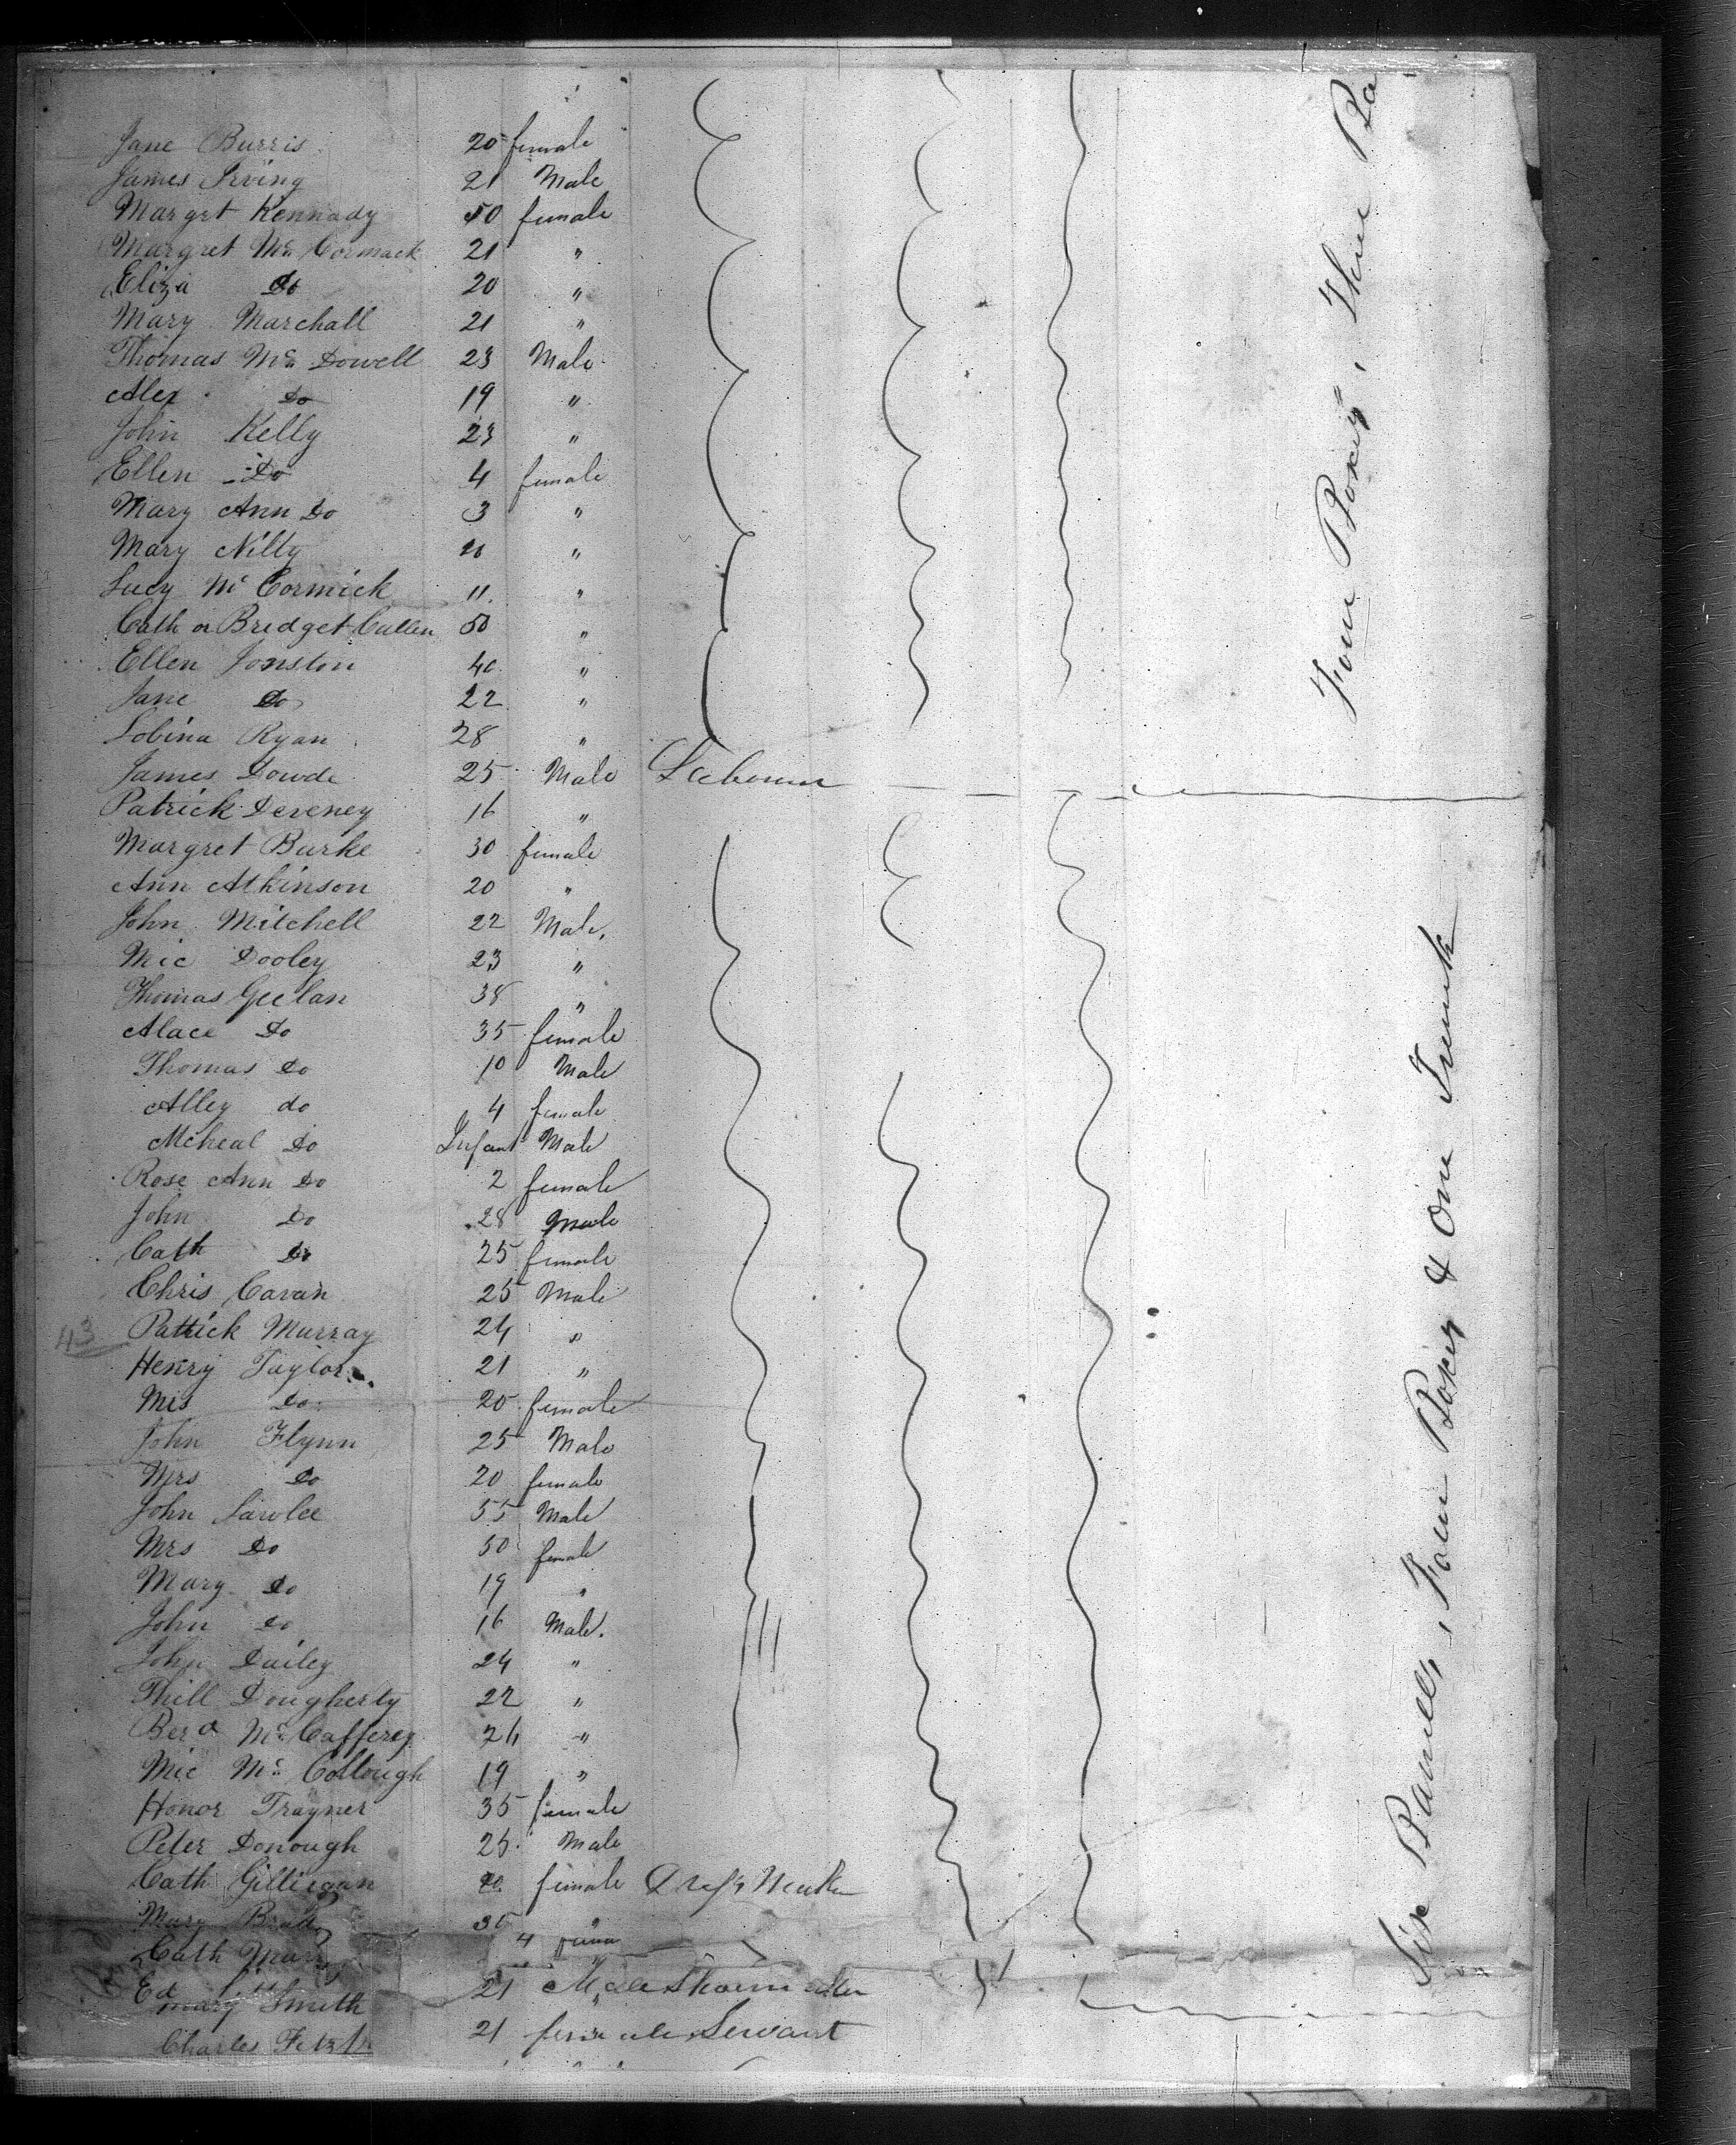 Jane Burris 20 female
James Irving 21 Male
Margret Kennady 50 female
Margret Mc Cormack 21 "
Eliza Do 20 "
Mary Marchall 21 "
Thomas Mc Dowell 23 Male
Alex Do 19 "
John Kelly 23 "
Ellen Do 4 female
Mary Ann Do 3 "
Mary Nilty "
Lucy Mc Cormick 11 "
Cath or Bridget Cullen 50 "
Ellen Jonston 40 "
Jane Do 22 "
Sobina Ryan 28 "
James Dowde 25 Male
Patrick Dereney 16 "
Margret Burke 30 female
Ann Atkinson 20 "
John Mitchell 22 Male
Mic Dooley 23 "
Thomas Geelan 38 "
Alace Do 35 female
Thomas Do 10 Male
Alley do 4 female
Mcheal Do Infant Male
Rose Ann Do 2 female
John Do 28 Male
Cath Do 25 female
Chris Cavan 25 Male
43 Patrick Murray 24 "
Henry Taylor 21 "
Mis Do 20 female
John Flynn 25 Male
Mrs Do 20 female
John Lawlee 55 Male
Mrs Do 50 female
Mary Do 19 "
John Do 16 Male
John Dailey 24 "
Phill Dougherty 22 "
Berd Mc Cafferey 26 "
Mic Mc Collough 19 "
Honor Trayner 35 female
Peter Donough 25 Male
Cath Gilligan female
Mary 30 "
4
Cath
Ed 21 Male
Mary Smith 21 female Servant
Charles
Four Boxes, Three
Six Barrells, Four Boxes & One Trunk